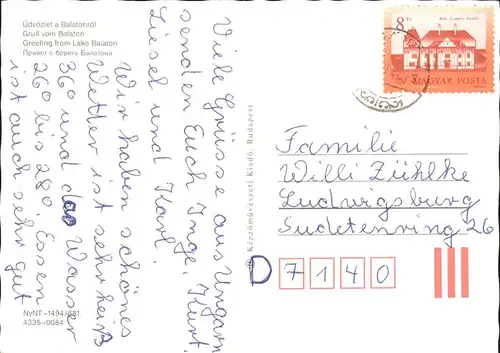 Üdvözlet a Balatonról
Gruß vom Balaton
Greeting from Lake Balaton
Привет с берега Балатона
Viele Grüsse aus Ungarn
senden Euch Inge, Kurt,
Liesel und Karl.
Wir haben schönes
Wetter ist sehr heiß
36° und das Wasser
26° bis 28°. Essen
ist auch sehr gut
NyNT.-1494/881
4335-0084
Képzőművészeti Kiadó, Budapest
8 Ft
MAGYAR POSTA
Familie
Willi Zühlke
Ludwigsburg
Sudetenring 26
D 7140